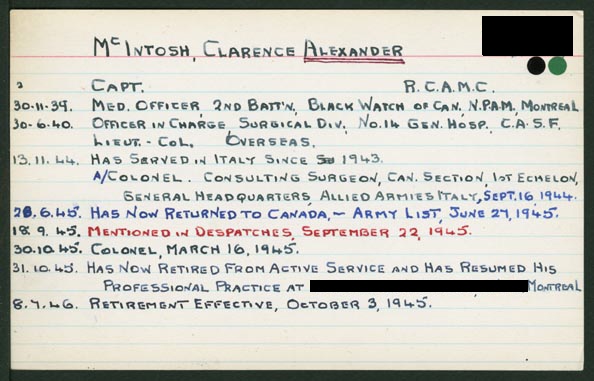 McINTOSH, CLARENCE ALEXANDER
CAPT. R.C.A.M.C.
30-11-39. MED. OFFICER, 2ND BATT'N, BLACK WATCH OF CAN. N.P.A.M., MONTREAL
30-6-40. OFFICER IN CHARGE, SURGICAL DIV., NO.14 GEN. HOSP., C.A.S.F.
LIEUT.-COL. OVERSEAS.
13.11.44. HAS SERVED IN ITALY SINCE 1943.
A/COLONEL. CONSULTING SURGEON, CAN. SECTION, 1ST ECHELON,
GENERAL HEADQUARTERS, ALLIED ARMIES ITALY, SEPT. 16, 1944.
28.6.45. HAS NOW RETURNED TO CANADA, - ARMY LIST, JUNE 27, 1945.
18.9.45. MENTIONED IN DESPATCHES, SEPTEMBER 22, 1945.
30.10.45. COLONEL, MARCH 16, 1945.
31.10.45. HAS NOW RETIRED FROM ACTIVE SERVICE AND HAS RESUMED HIS
PROFESSIONAL PRACTICE AT MONTREAL
8.7.46. RETIREMENT EFFECTIVE, OCTOBER 3, 1945.